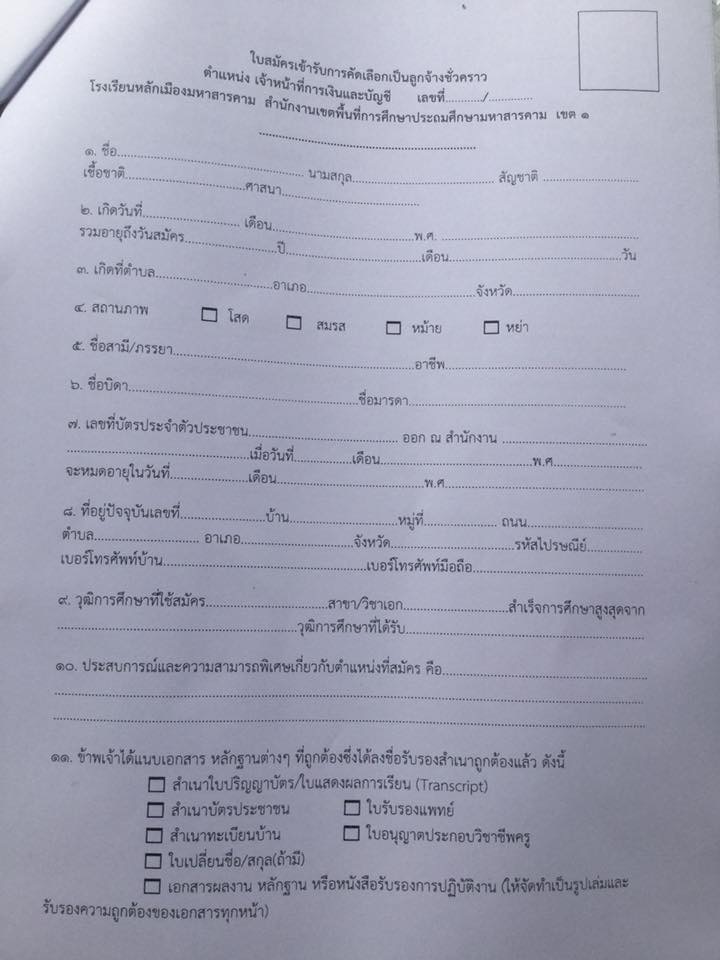 ใบสมัครเข้ารับการคัดเลือกเป็นลูกจ้างชั่วคราว
ตำแหน่ง เจ้าหน้าที่การเงินและบัญชี เลขที่............/..............
โรงเรียนหลักเมืองมหาสารคาม สำนักงานเขตพื้นที่การศึกษาประถมศึกษามหาสารคาม เขต ๑
............................................................
๑. ชื่อ................................................ นามสกุล.................................... สัญชาติ ........................
เชื้อชาติ..............................ศาสนา...................................
๒. เกิดวันที่......................... เดือน....................................พ.ศ. .................................................
รวมอายุถึงวันสมัคร.......................ปี....................................เดือน...........................................วัน
๓. เกิดที่ตำบล..............................อาเภอ...........................................จังหวัด................................
๔. สถานภาพ ☐ โสด ☐ สมรส ☐ หม้าย ☐ หย่า
๕. ชื่อสามี/ภรรยา.............................................................อาชีพ.............................................
๖. ชื่อบิดา..........................................................ชื่อมารดา.......................................................
๗. เลขที่บัตรประจำตัวประชาชน...................................... ออก ณ สำนักงาน .....................................
..............................................เมื่อวันที่...............เดือน......................................พ.ศ.......................
จะหมดอายุในวันที่....................เดือน......................................พ.ศ.................................................
๘. ที่อยู่ปัจจุบันเลขที่......................บ้าน............................หมู่ที่................... ถนน.............................
ตำบล........................... อาเภอ.............................จังหวัด................................รหัสไปรษณีย์..............
เบอร์โทรศัพท์บ้าน....................................................เบอร์โทรศัพท์มือถือ...........................................
๙. วุฒิการศึกษาที่ใช้สมัคร...............................สาขา/วิชาเอก...........................สำเร็จการศึกษาสูงสุดจาก
.............................................................วุฒิการศึกษาที่ได้รับ.............................................................
๑๐. ประสบการณ์และความสามารถพิเศษเกี่ยวกับตำแหน่งที่สมัคร คือ....................................................
......................................................................................................................................................
......................................................................................................................................................
๑๑. ข้าพเจ้าได้แนบเอกสาร หลักฐานต่างๆ ที่ถูกต้องซึ่งได้ลงชื่อรับรองสำเนาถูกต้องแล้ว ดังนี้
☐ สำเนาใบปริญญาบัตร/ใบแสดงผลการเรียน (Transcript)
☐ สำเนาบัตรประชาชน ☐ ใบรับรองแพทย์
☐ สำเนาทะเบียนบ้าน ☐ ใบอนุญาตประกอบวิชาชีพครู
☐ ใบเปลี่ยนชื่อ/สกุล(ถ้ามี)
☐ เอกสารผลงาน หลักฐาน หรือหนังสือรับรองการปฏิบัติงาน (ให้จัดทำเป็นรูปเล่มและ
รับรองความถูกต้องของเอกสารทุกหน้า)